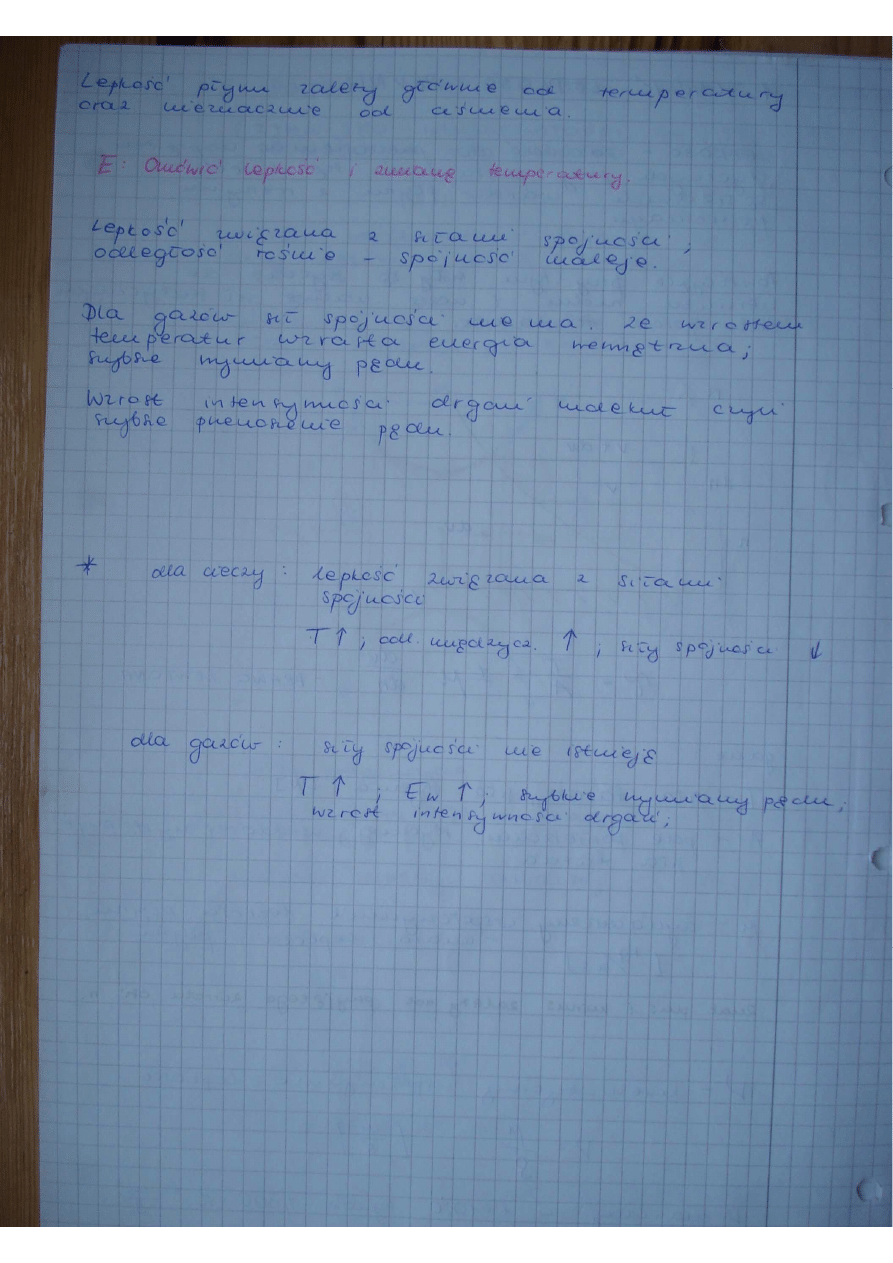 Lepkość płynu zależy głównie od temperatury
oraz nieznacznie od ciśnienia.
E: Omówić lepkość i zmianę temperatury.
Lepkość związana z siłami spójności;
odległość rośnie – spójność maleje.
Dla gazów sił spójności nie ma. Ze wzrostem
temperatur wzrasta energia wewnętrzna;
szybsze wymiany pędu.
Wzrost intensywności drgań molekuł czyli
szybsze przenoszenie pędu.
* dla cieczy: lepkość związana z siłami
spójności
T↑; odl. międzycz. ↑; siły spójności ↓
dla gazów: siły spójności nie istnieją
T↑; Ew↑; szybkie wymiany pędu;
wzrost intensywności drgań;